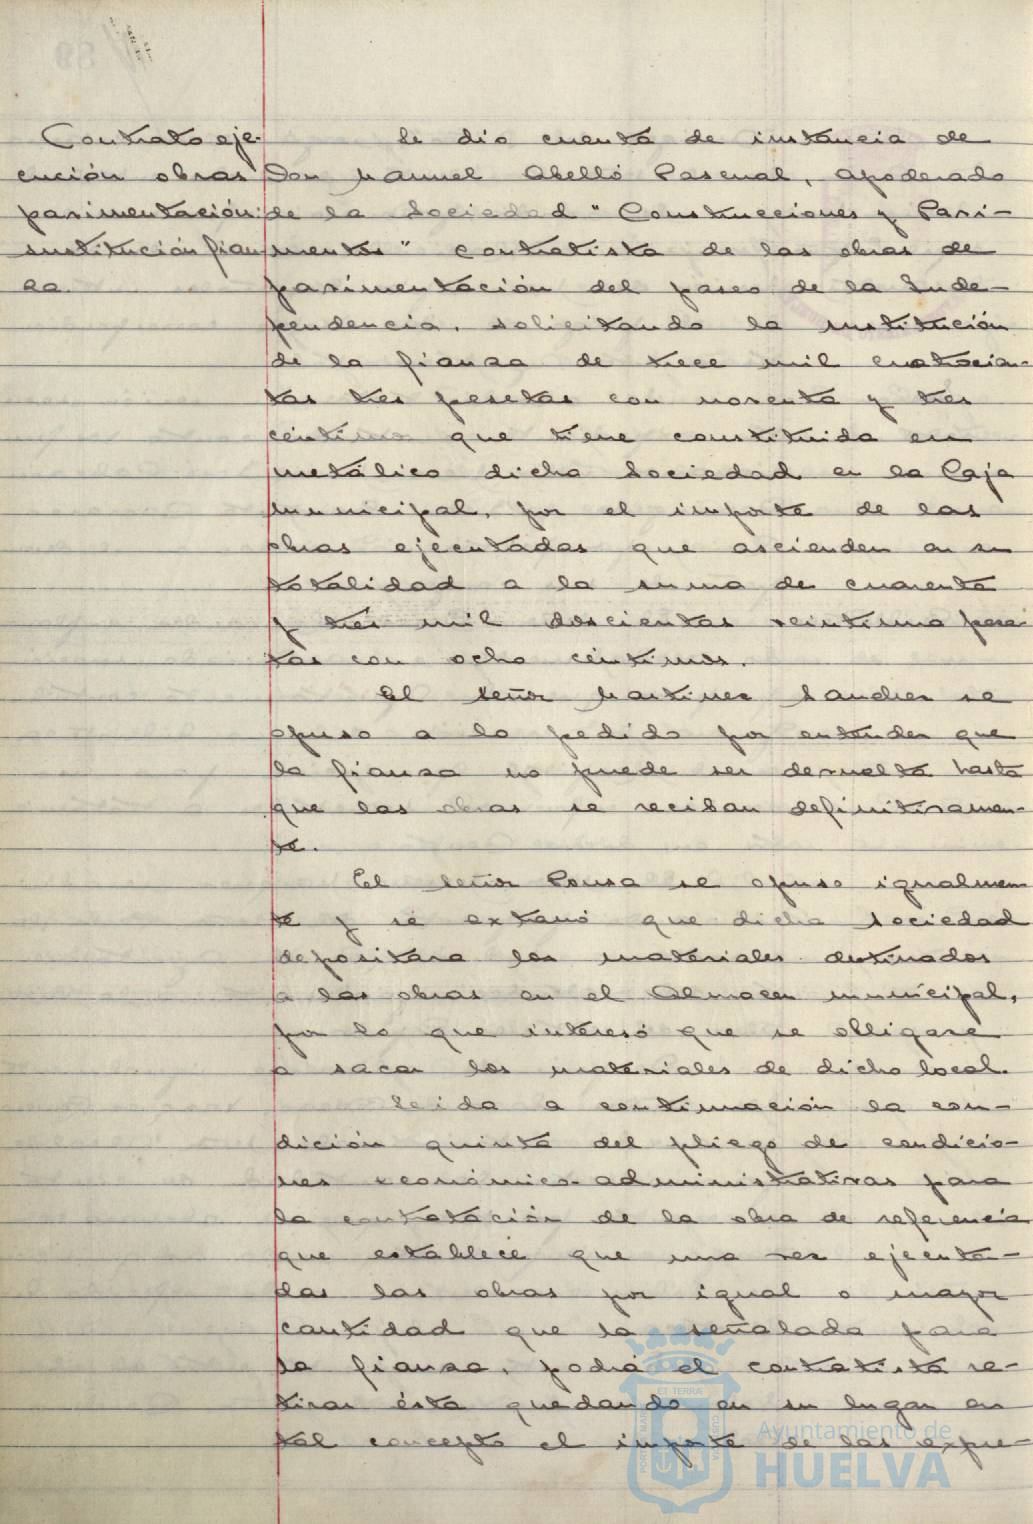 Contrato eje-
cución obras
pavimentación:
sustitución fian
za.
Se dio cuenta de instancia de
Don Manuel Abelló Pascual, apoderado
de la Sociedad "Construcciones y Pavi-
mentos" contratista de las obras de
pavimentación del paseo de la Inde-
pendencia, solicitando la sustitución
de la fianza de trece mil cuatrocien-
tas tres pesetas con noventa y tres
céntimos que tiene constituida en
metálico dicha Sociedad en la Caja
municipal, por el importe de las
obras ejecutadas que ascienden en su
totalidad a la suma de cuarenta
y tres mil doscientas veintiuna pese-
tas con ocho céntimos.
El señor Martinez Sanchez se
opuso a lo pedido por entender que
la fianza no puede ser devuelta hasta
que las obras se reciban definitivamen-
te.
El señor Pousa se opuso igualmen-
te y se extrañó que dicha sociedad
depositara los materiales destinados
a las obras en el Almacen municipal,
por lo que interesó que se obligase
a sacar los materiales de dicho local.
Leida a continuación la con-
dición quinta del pliego de condicio-
nes económico-administrativas para
la contratación de la obra de referencia
que establece que una vez ejecuta-
das las obras por igual o mayor
cantidad que la señalada para
la fianza, podrá el contratista re-
tirar ésta quedando en su lugar en
tal concepto el importe de las expre-
Ayuntamiento de
HUELVA